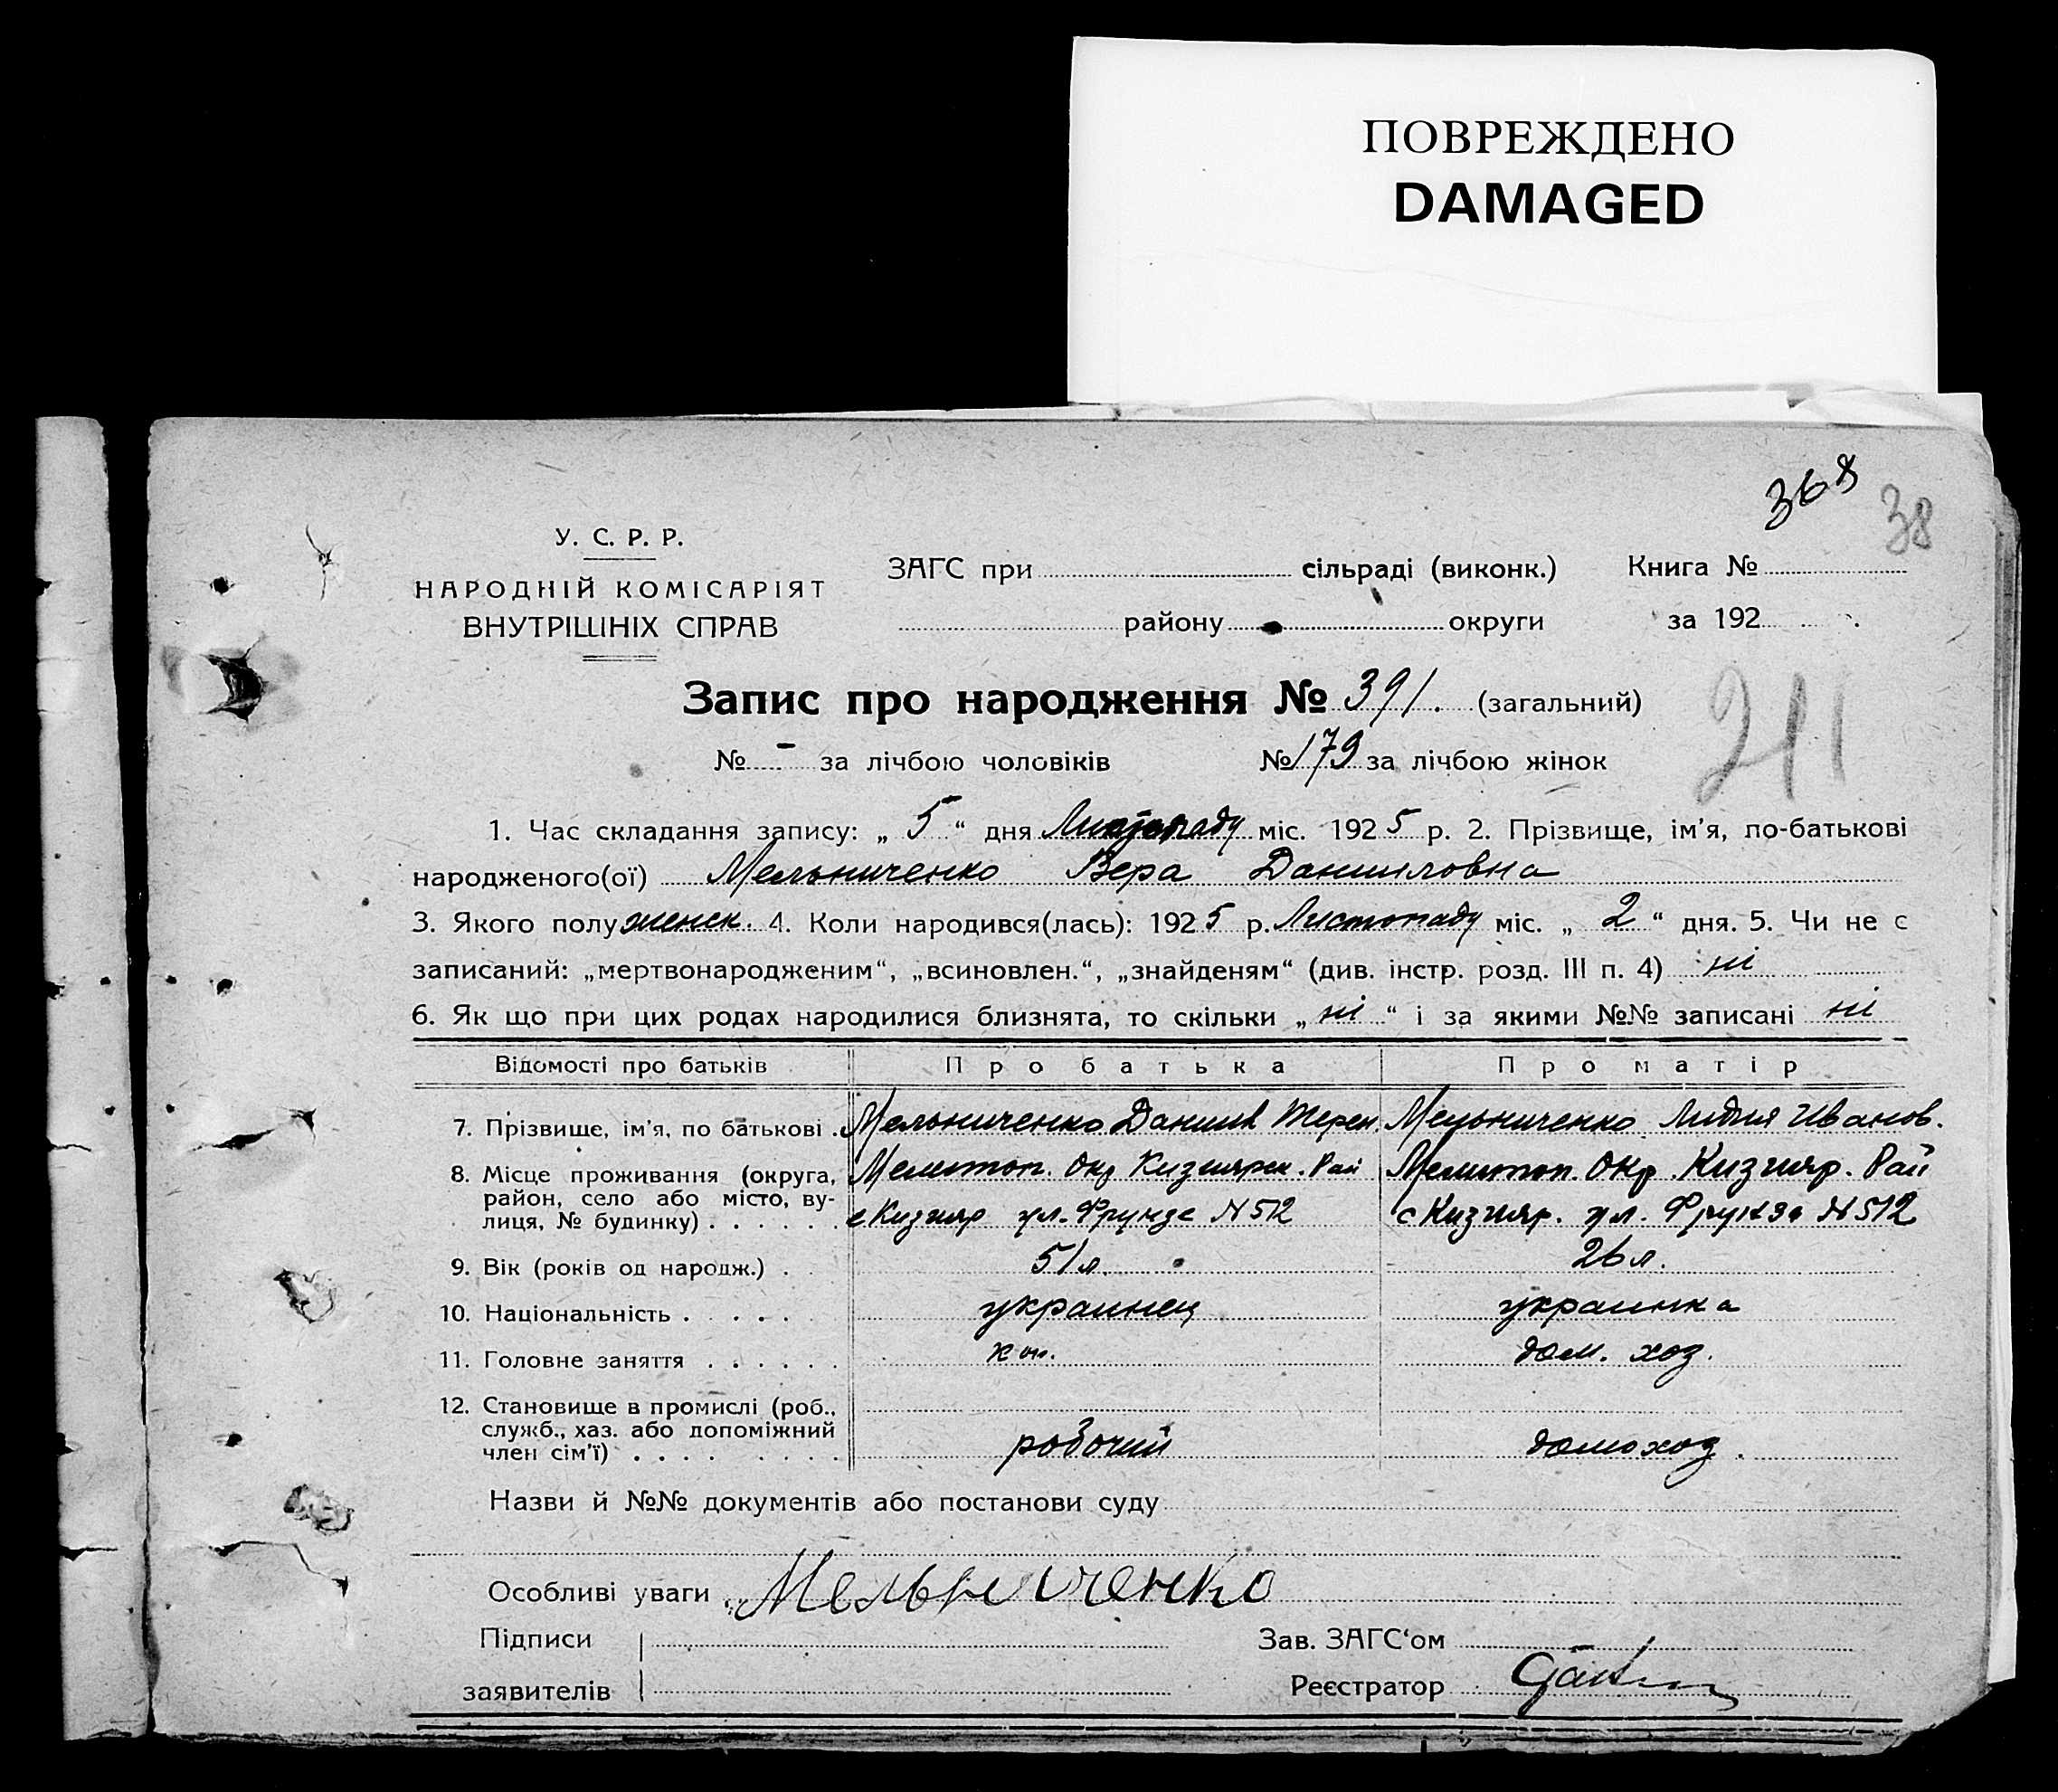 ПОВРЕЖДЕНО
DAMAGED
368
38
У. С. Р. Р.
НАРОДНІЙ КОМІСАРІЯТ
ВНУТРІШНІХ СПРАВ
ЗАГС при сільраді (виконк.) Книга №
району округи за 192
Запис про народження № 391. (загальний)
211
№ - за лічбою чоловіків № 179 за лічбою жінок
1. Час складання запису: „ 5 “ дня Листопаду міс. 1925 р. 2. Прізвище, ім’я, по-батькові
народженого(ої) Мельниченко Вера Данииловна
3. Якого полу женск. 4. Коли народився(лась): 1925 р. Листопаду міс. „ 2 “ дня. 5. Чи не є
записаний: „мертвонародженим“, „всиновлен.“, „знайденям“ (див. інстр. розд. III п. 4) ні
6. Як що при цих родах народилися близнята, то скільки „ ні “ і за якими №№ записані ні
Відомості про батьків Про батька Про матір
7. Прізвище, ім’я, по батькові . Мельниченко Даниил Терен. Мельниченко Лидия Иванов.
8. Місце проживання (округа, Мелитоп. Окр Кизиярск. Рай Мелитоп. Окр. Кизияр. Рай
район, село або місто, ву-
лиця, № будинку) . . . . . . с Кизияр ул. Фрунзе № 512 с Кизияр. ул. Фрунзе № 512
9. Вік (років од народж.) . 51 л. 26 л.
10. Національність . . . . . украинец украинка
11. Головне заняття . . . . . . дом. хоз.
12. Становище в промислі (роб.,
служб., хаз. або допоміжний
член сім’ї) . . . . . . . . робочий домохоз.
Назви й №№ документів або постанови суду
Особливі уваги Мельниченко
Підписи Зав. ЗАГС‘ом
заявителів Реєстратор